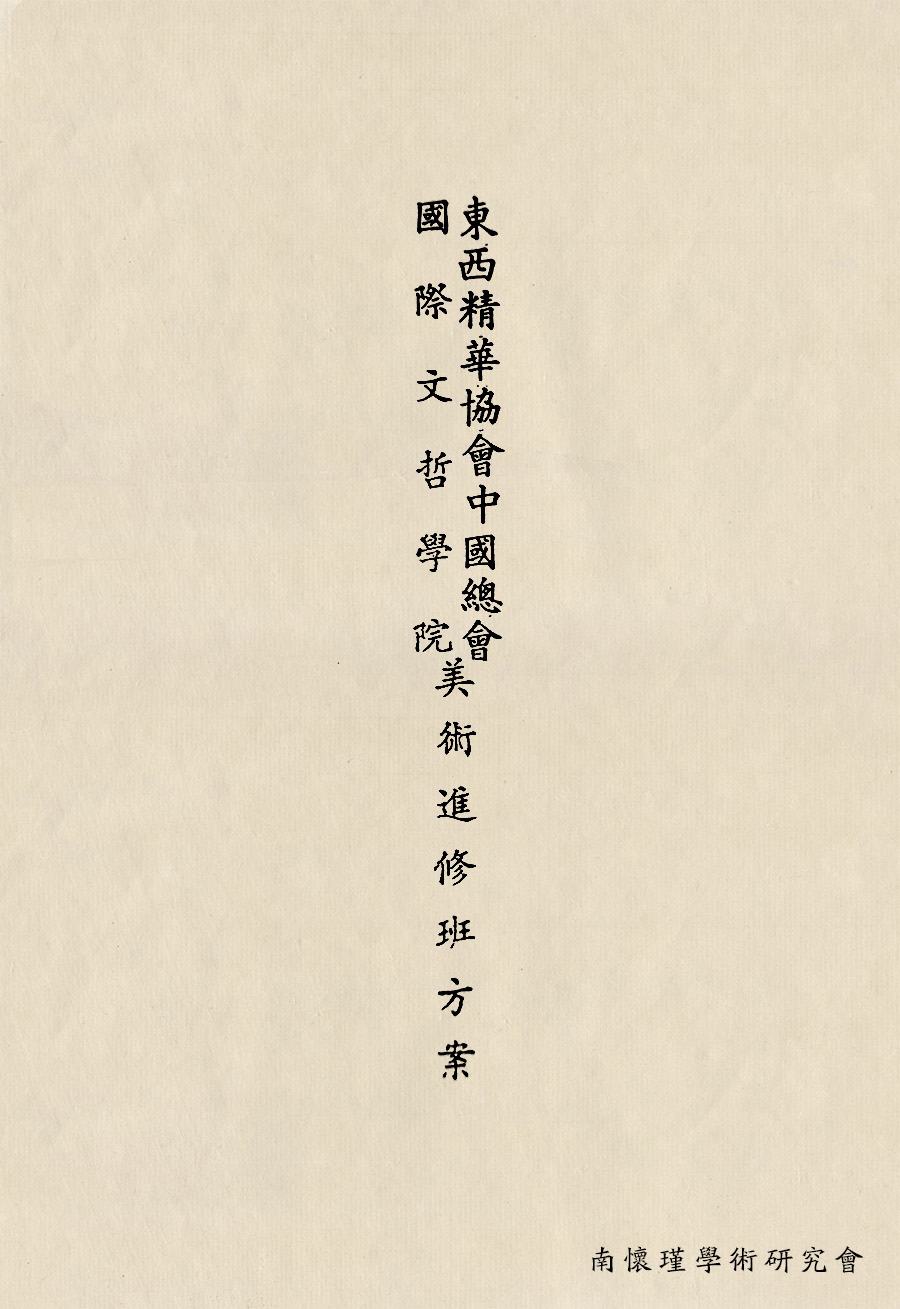 東西精華協會中國總會
國際文哲學院
美術進修班方案
南懷瑾學術研究會